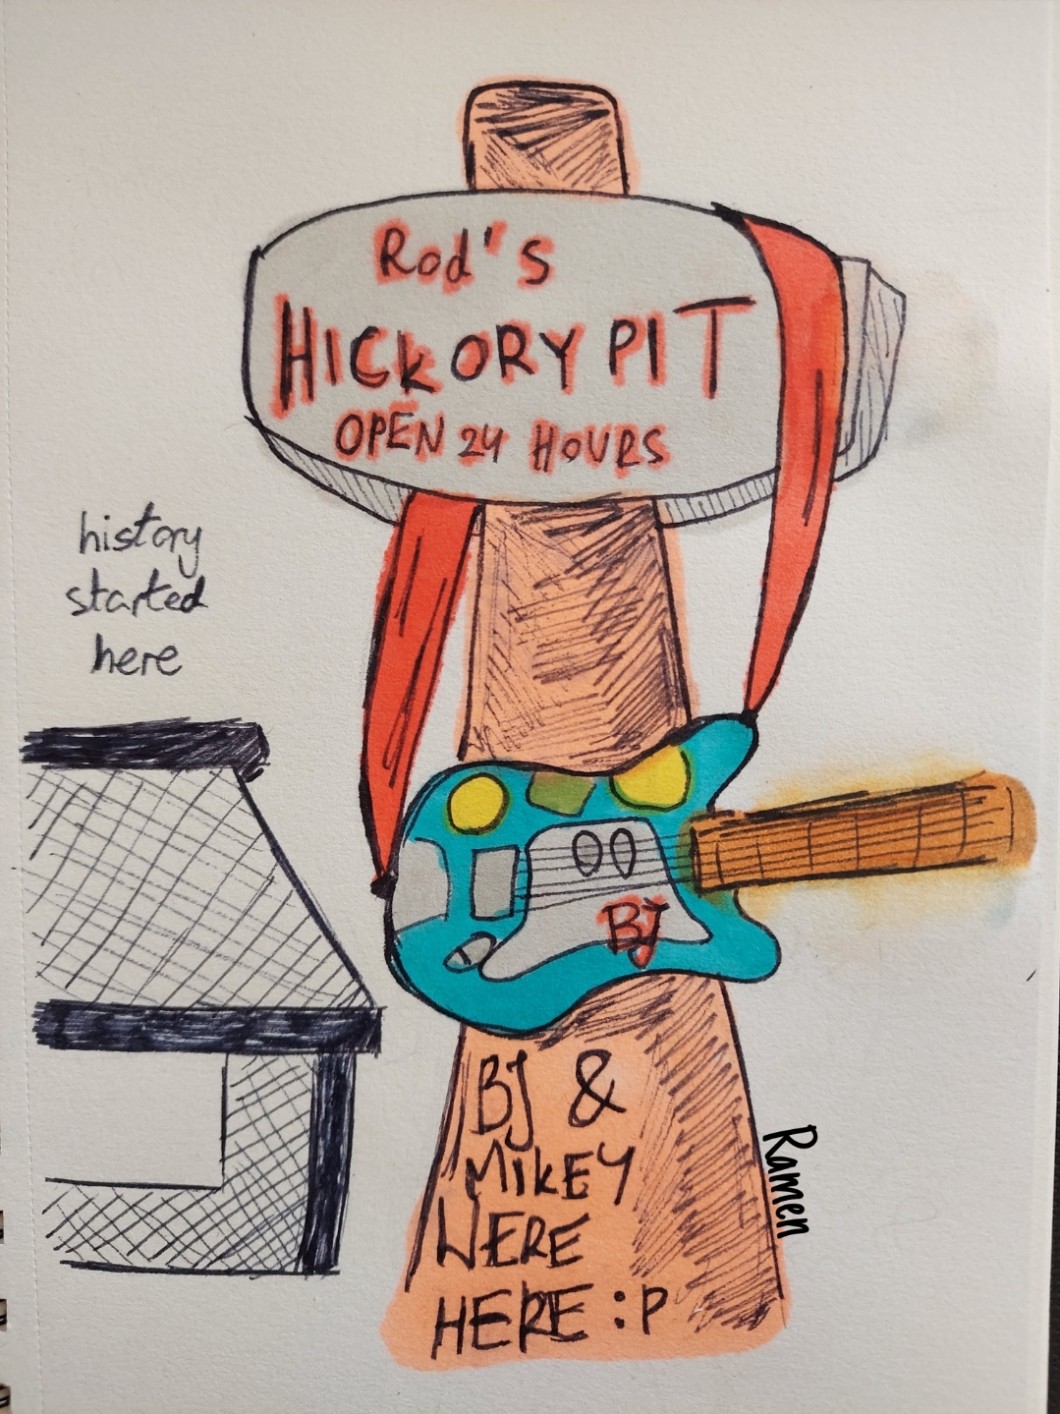 Rod's
HICKORY PIT
OPEN 24 HOURS
history
started
here
BJ
BJ &
MIKEY
WERE
HERE :P
Ramen